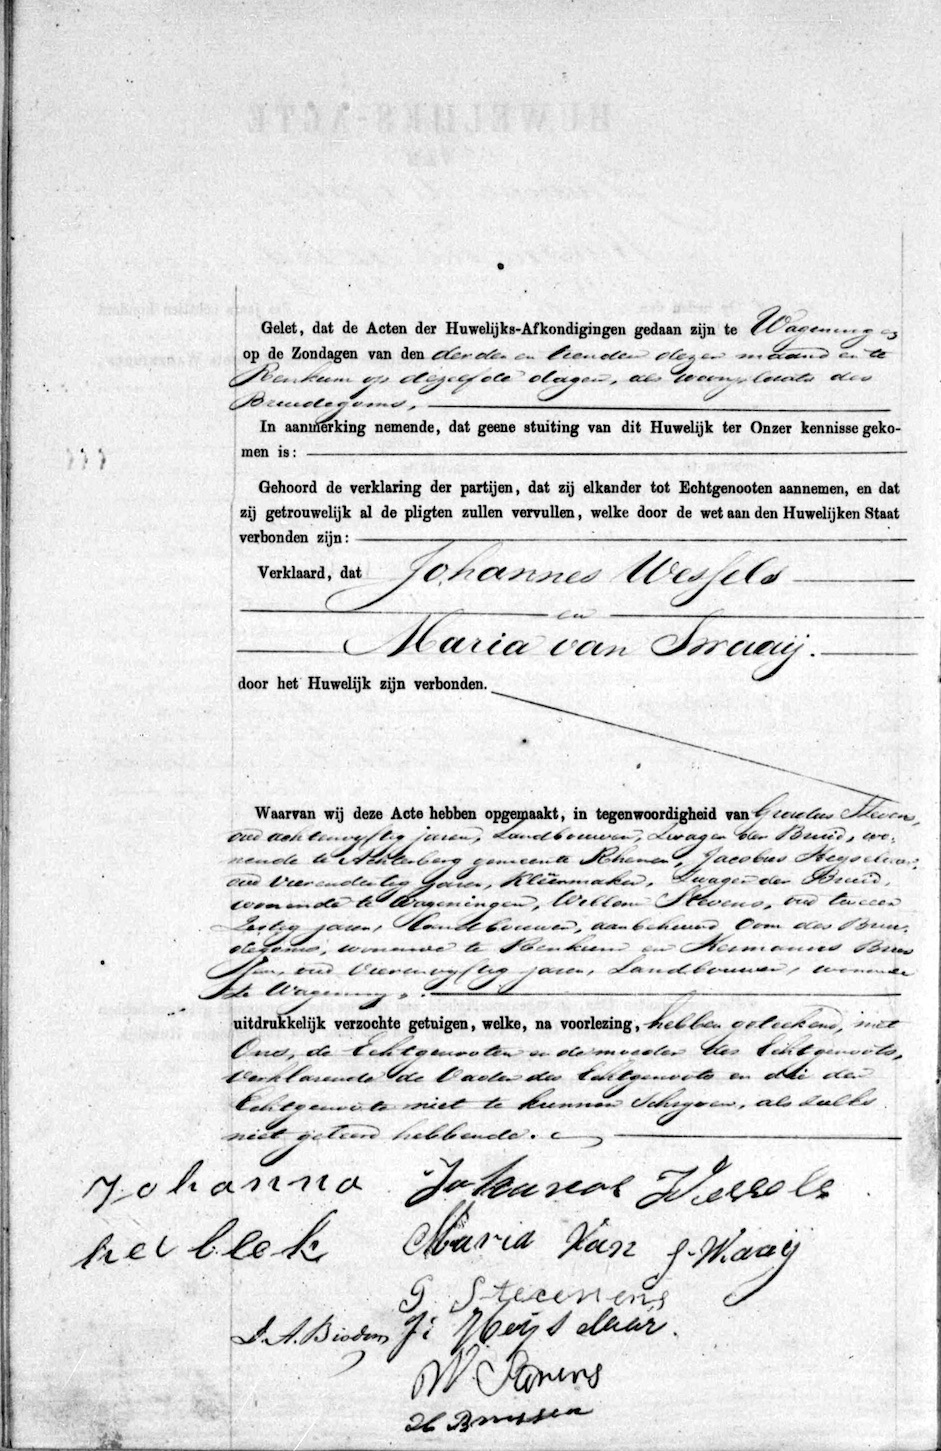 Gelet, dat de Acten der Huwelijks-Afkondigingen gedaan zijn te Wageningen
op de Zondagen van den derden en tienden dezer maand en te
Renkum op dezelfde dagen, als woonplaats des
Bruidegoms,
In aanmerking nemende, dat geene stuiting van dit Huwelijk ter Onzer kennisse geko-
men is:
Gehoord de verklaring der partijen, dat zij elkander tot Echtgenooten aannemen, en dat
zij getrouwelijk al de pligten zullen vervullen, welke door de wet aan den Huwelijken Staat
verbonden zijn:
Verklaard, dat Johannes Wessels
en
Maria van Swaaij.
door het Huwelijk zijn verbonden.
Waarvan wij deze Acte hebben opgemaakt, in tegenwoordigheid van Stevens,
oud achtenvyftig jaren, Landbouwer, Zwager der Bruid, wo-
nende te Achterberg gemeente Rhenen, Jacobus Heyselaar,
oud vierendertig jaren, Kleermaker, Zwager der Bruid,
wonende te Wageningen, Willem Stevens, oud tweeen
Zestig jaren, Landbouwer, aanbehuwd Oom des Brui-
degoms, wonende te Renkum en Hermanus Brus
sen, oud vierenvyftig jaren, Landbouwer, wonende
te Wageningen.
uitdrukkelijk verzochte getuigen, welke, na voorlezing, hebben geteekend, met
Ons, de Echtgenooten en de moeder des Echtgenoots,
verklarende de Vader des Echtgenoots en die der
Echtgenoote niet te kunnen Schryven, als zulks
niet geleerd hebbende.
Johanna Johannes Wessels
Maria Van Swaay
G Stevens
J. Heijselaar.
W. Stevens
H Brussen